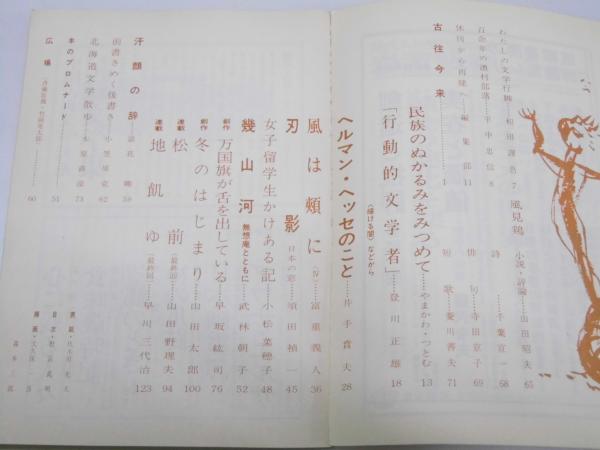 わたしの文学行脚……和田謹吾 7
百余年の漁村部落……平中忠信 8
休刊から再建へ……編集部 11
古往今来……1
風見鶏
小説・評論……山田昭夫 65
詩……千葉宣一 68
俳句……寺田京子 69
短歌……菱川善夫 71
民族のぬかるみをみつめて……やまかわ・つとむ 13
「行動的文学者」……登川正雄 18
〈緑ける闇〉などから
ヘルマン・ヘッセのこと……井手賁夫 28
風は頰に〈Ⅳ〉……富重義人 36
刃影 日本の窓……須田禎一 45
女子留学生かけある記……小松菊穂子 48
幾山河 無想庵とともに……武林朝子 52
創作 万国旗が舌を出している……早坂紘司 76
創作 冬のはじまり……山田太郎 100
連載 松前〈最終回〉……山田野理夫 94
連載 地飢ゆ〈最終回〉……早川三代治 123
汗顔の辞 59
前書きめく後書き……小笠原克 62
北海道文学散歩……木原直彦 73
本のプロムナード……51
広場……60